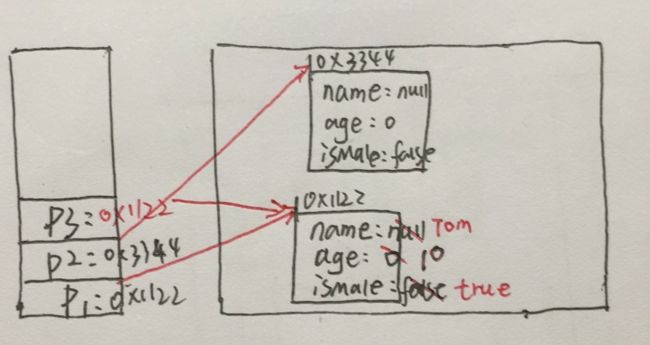 0x3344
name:null
age:0
isMale:false
P3:0x1122
P2:0x3344
P1:0x1122
0x1122
name:null Tom
age:0 10
ismale:false true